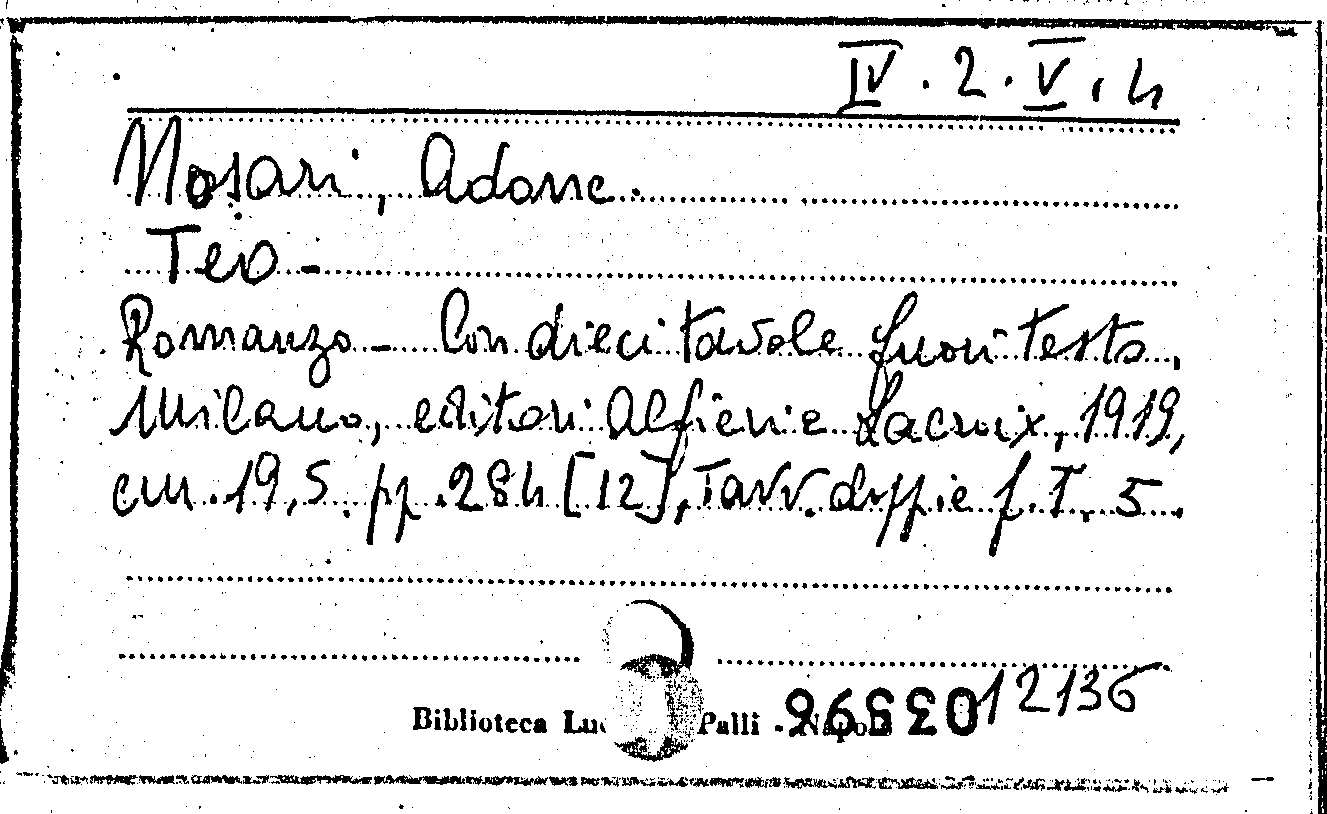 IV. 2. V. 4
Nosari, Adone.
Teo -
Romanzo - Con dieci tavole fuori testo.
Milano, editori Alfieri e Lacroix, 1919,
cm. 19,5. pp. 284 [12], Tavv. doppie f. T. 5.
12136
Biblioteca Palli - Napoli